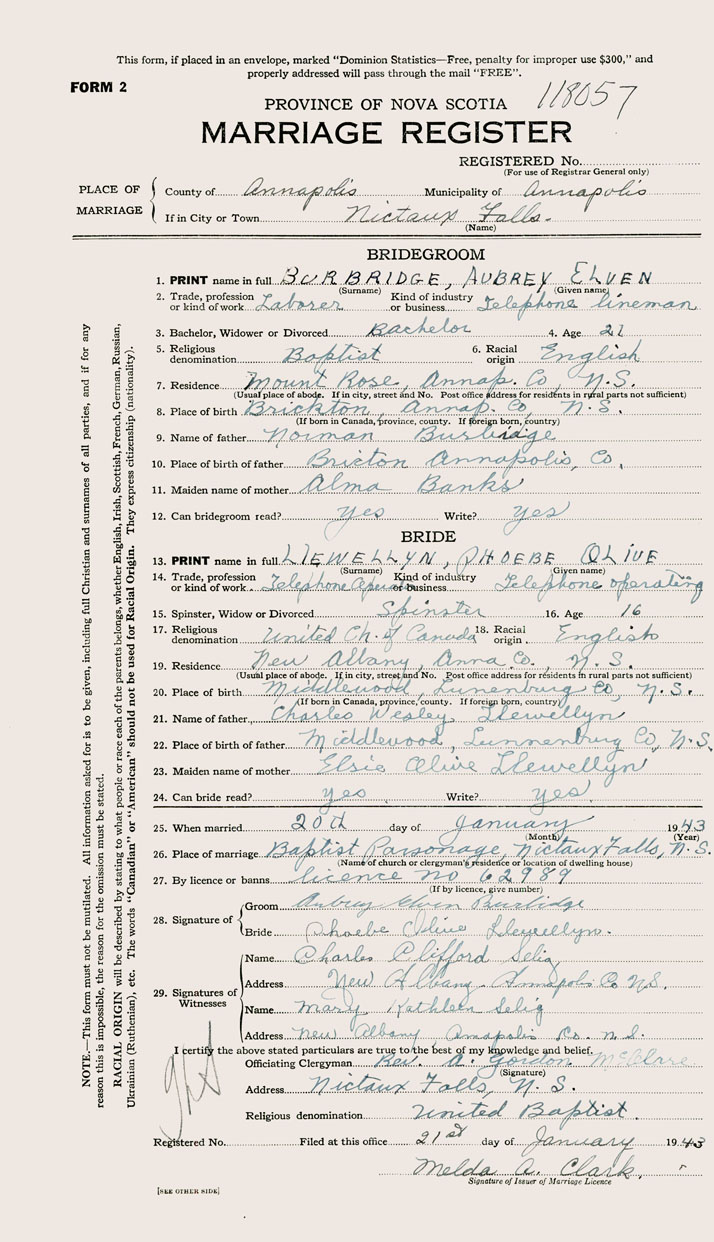 This form, if placed in an envelope, marked "Dominion Statistics—Free, penalty for improper use $300," and
properly addressed will pass through the mail "FREE".
FORM 2
PROVINCE OF NOVA SCOTIA 118057
MARRIAGE REGISTER
REGISTERED No.
(For use of Registrar General only)
PLACE OF MARRIAGE
County of Annapolis Municipality of Annapolis
If in City or Town Nictaux Falls.
(Name)
BRIDEGROOM
1. PRINT name in full BURBRIDGE, AUBREY ELVEN
(Surname) (Given name)
2. Trade, profession or kind of work Laborer Kind of industry or business Telephone lineman
3. Bachelor, Widower or Divorced Bachelor 4. Age 21
5. Religious denomination Baptist 6. Racial origin English
7. Residence Mount Rose, Annap. Co, N.S.
(Usual place of abode. If in city, street and No. Post office address for residents in rural parts not sufficient)
8. Place of birth Brickton, Annap. Co, N.S.
(If born in Canada, province, county. If foreign born, country)
9. Name of father Norman Burbidge
10. Place of birth of father Bricton Annapolis, Co,
11. Maiden name of mother Alma Banks
12. Can bridegroom read? yes Write? yes
BRIDE
13. PRINT name in full LLEWELLYN, PHOEBE OLIVE
(Surname) (Given name)
14. Trade, profession or kind of work Telephone Kind of industry or business Telephone operating
15. Spinster, Widow or Divorced Spinster 16. Age 16
17. Religious denomination United Ch. of Canada 18. Racial origin English
19. Residence New Albany, Anna Co., N.S.
(Usual place of abode. If in city, street and No. Post office address for residents in rural parts not sufficient)
20. Place of birth Middlewood, Lunenburg Co, N.S.
(If born in Canada, province, county. If foreign born, country)
21. Name of father Charles Wesley Llewellyn
22. Place of birth of father Middlewood, Lunnenburg Co, N.S.
23. Maiden name of mother Elsie Olive Llewellyn
24. Can bride read? yes Write? yes
25. When married 20th day of January 1943
(Month) (Year)
26. Place of marriage Baptist Parsonage, Nictaux Falls, N.S.
(Name of church or clergyman's residence or location of dwelling house)
27. By licence or banns licence no 62989
(If by licence, give number)
28. Signature of
Groom Aubrey Elven Burbidge
Bride Phoebe Olive Llewellyn.
29. Signatures of Witnesses
Name Charles Clifford Selig
Address New Albany Annapolis Co N.S.
Name Mary Kathleen Selig
Address New Albany Annapolis Co. N.S.
I certify the above stated particulars are true to the best of my knowledge and belief.
Officiating Clergyman Rev. A. Gordon
(Signature)
Address Nictaux Falls, N.S.
Religious denomination United Baptist.
Registered No. Filed at this office 21st day of January 1943
Melda A. Clark.
Signature of Issuer of Marriage Licence
[SEE OTHER SIDE]
NOTE.—This form must not be mutilated. All information asked for is to be given, including full Christian and surnames of all parties, and if for any
reason this is impossible, the reason for the omission must be stated.
RACIAL ORIGIN will be described by stating to what people or race each of the parents belongs, whether English, Irish, Scottish, French, German, Russian,
Ukrainian (Ruthenian), etc. The words "Canadian" or "American" should not be used for Racial Origin. They express citizenship (nationality).